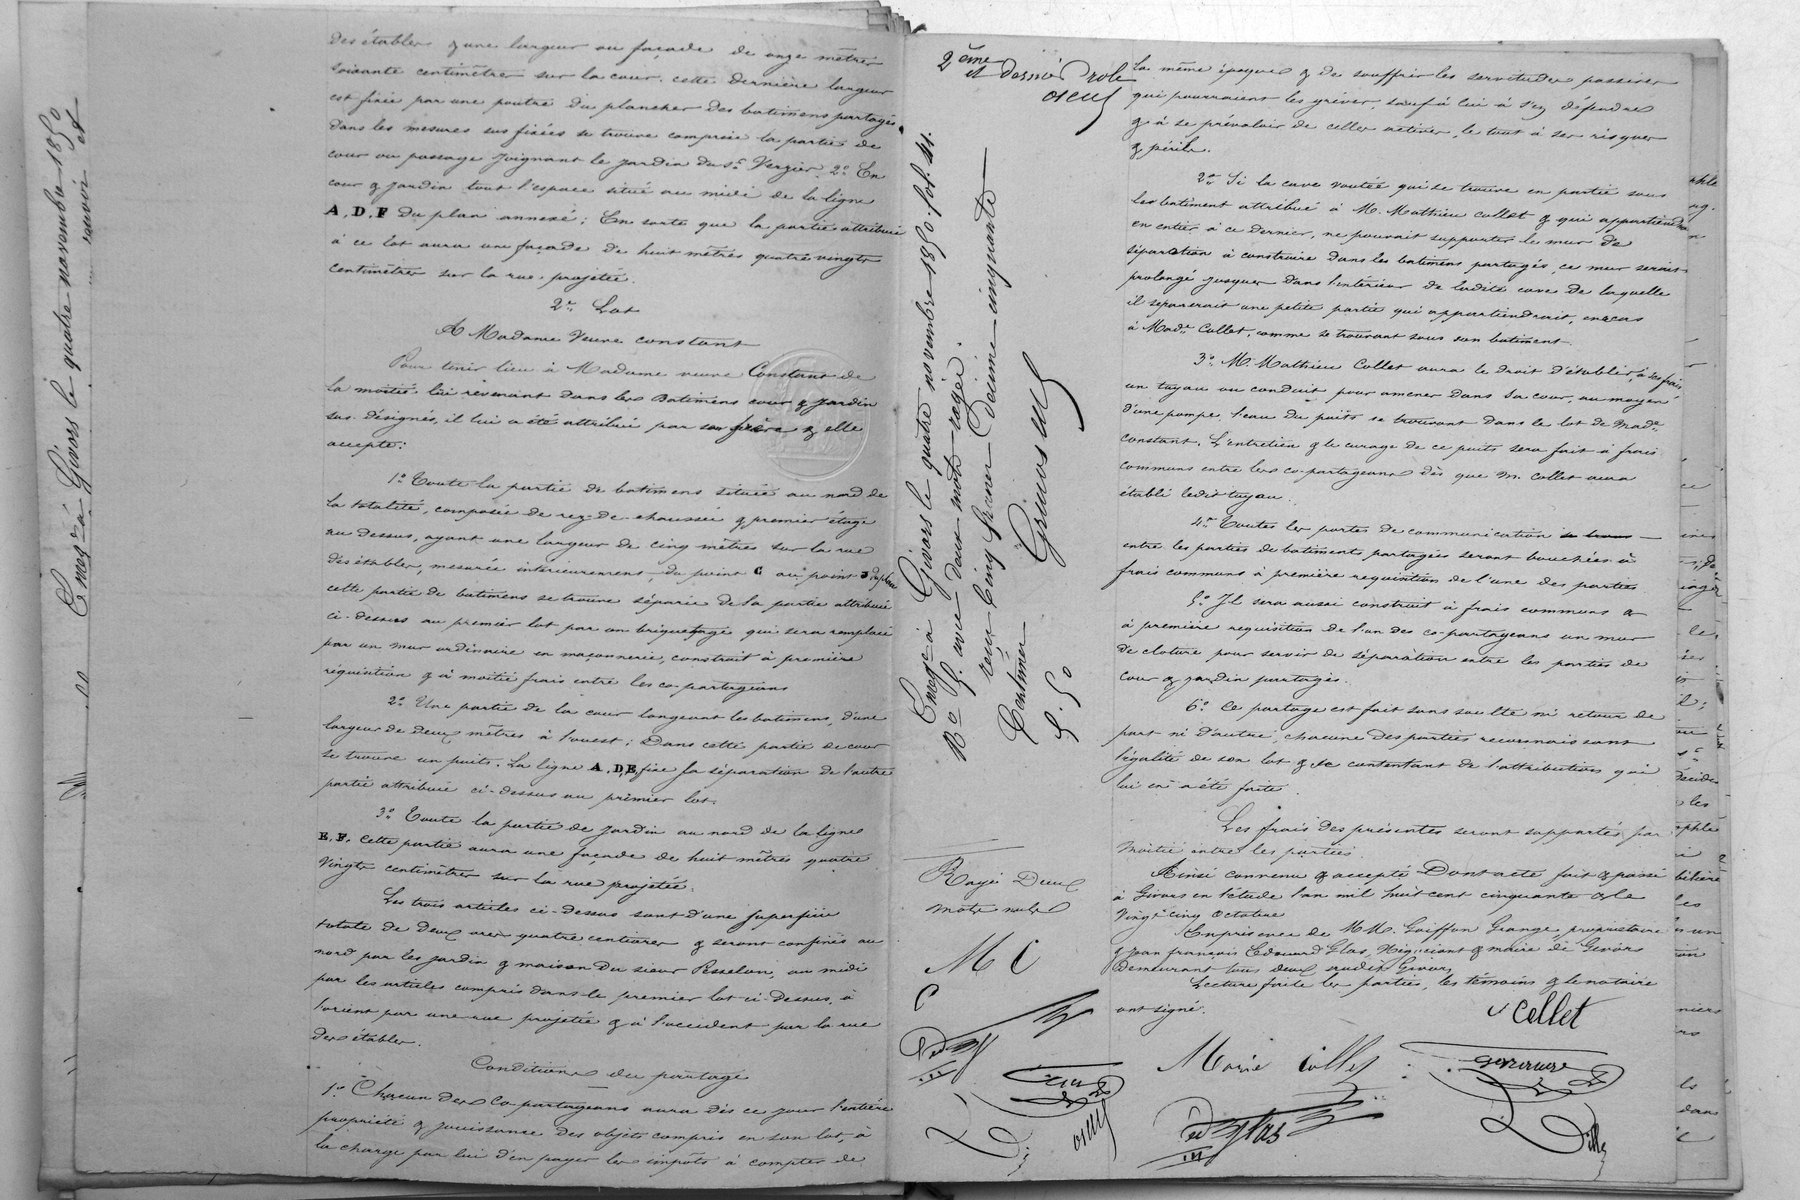 des étables & une largeur ou façade de onze mètres
soixante centimètres sur la cour. cette dernière largeur
est fixée par une poutre du plancher des batimens partagés
dans les mesures sus fixées se trouve comprise la partie de
cour ou passage joignant le jardin du Sr. Verzier. 2o. En
cour & jardin tout l'espace situé au midi de la ligne
A, D, F du plan annexé; En sorte que la partie attribuée
à ce lot aura une façade de huit mètres quatre vingts
centimètres sur la rue projetée.
2e. Lot
A Madame Veuve Constant
Pour tenir lieu à Madame veuve Constant de
la moitié lui revenant dans les Batimens cour & jardin
sus-désignés, il lui a été attribué par son frère & elle
accepte:
1o. Toute la partie de batimens située au nord de
la totalité, composée de rez-de-chaussée & premier étage
au dessus, ayant une largeur de cinq mètres sur la rue
des étables, mesurée intérieurement, du point C au point 3 du plan
cette partie de batimens se trouve séparée de la partie attribuée
ci-dessus au premier lot par un briquetage qui sera remplacé
par un mur ordinaire en maçonnerie, construit à première
réquisition & à moitié frais entre les co-partageans
2o. Une partie de la cour longeant les batimens, d'une
largeur de deux mètres à l'ouest; Dans cette partie de cour
se trouve un puits. La ligne A, D, E, fixe la séparation de l'autre
partie attribuée ci-dessus au premier lot.
3o. Toute la partie de jardin au nord de la ligne
E, F. Cette partie aura une façade de huit mètres quatre
vingts centimètres sur la rue projetée.
Les trois articles ci-dessus sont d'une superficie
totale de deux ares quatre centiares & seront confinés au
nord par les jardin & maison du sieur Rosselon, au midi
par les articles compris dans le premier lot ci-dessus, à
l'orient par une rue projetée & à l'occident par la rue
des étables.
Conditions du partage
1o. Chacun des Co-partageans aura dès ce jour l'entière
propriété & jouissance des objets compris en son lot, à
la charge par lui d'en payer les impôts à compter de
2ème et dernier role
la même époque & de souffrir les servitudes passives
qui pourraient les grever, sauf à lui à s'en défendre
& à se prévaloir de celles actives, le tout à ses risques
& périls.
2o. Si la cave voutée qui se trouve en partie sous
les batiment attribué à M. Mathieu Collet & qui appartiendra
en entier à ce dernier, ne pouvait supporter le mur de
séparation à construire dans les batimens partagés, ce mur serait
prolongé jusques dans l'intérieur de ladite cave de laquelle
il séparerait une petite partie qui appartiendrait, en ce cas
à Made. Collet, comme se trouvant sous son batiment.
3o. M. Mathieu Collet aura le droit d'établir, à ses frais,
un tuyau ou conduit pour amener dans sa cour, au moyen
d'une pompe l'eau du puits se trouvant dans le lot de Made.
Constant. L'entretien & le curage de ce puits sera fait à frais
communs entre les co-partageans dès que M. Collet aura
établi ledit tuyau.
4o. Toutes les portes de communication se trouv
entre les parties de batimens partagées seront bouchées à
frais communs à première requisition de l'une des parties
5o. Il sera aussi construit à frais communs &
à première requisition de l'un des co-partageans un mur
de cloture pour servir de séparation entre les parties de
cour & jardin partagés.
6o. Ce partage est fait sans soulte ni retour de
part ni d'autre, chacune des parties reconnaissant
l'égalité de son lot & se contentant de l'attribution qui
lui en a été faite.
Les frais des présentes seront supportés par
moitié entre les parties.
Ainsi convenu & accepté Dont acte fait & passé
à Givors en l'étude l'an mil huit cent cinquante & le
vingt cinq Octobre
En présence de MM. Goiffon Grange propriétaire
& Jean François Edouard Glas, Négociant & maire de Givors
demeurant tous deux audit Givors
Lecture faite les parties, les témoins & le notaire
ont signé.
Collet
Marie Collet
Enregé à Givors le quatre novembre 1850. fol. 41.
Ro. C. avec deux mots rayés.
reçu cinq francs Décime cinquante
centimes
5. 50
Rayé Deux
mots nuls
M C
Enregé à Givors le quatre novembre 1850